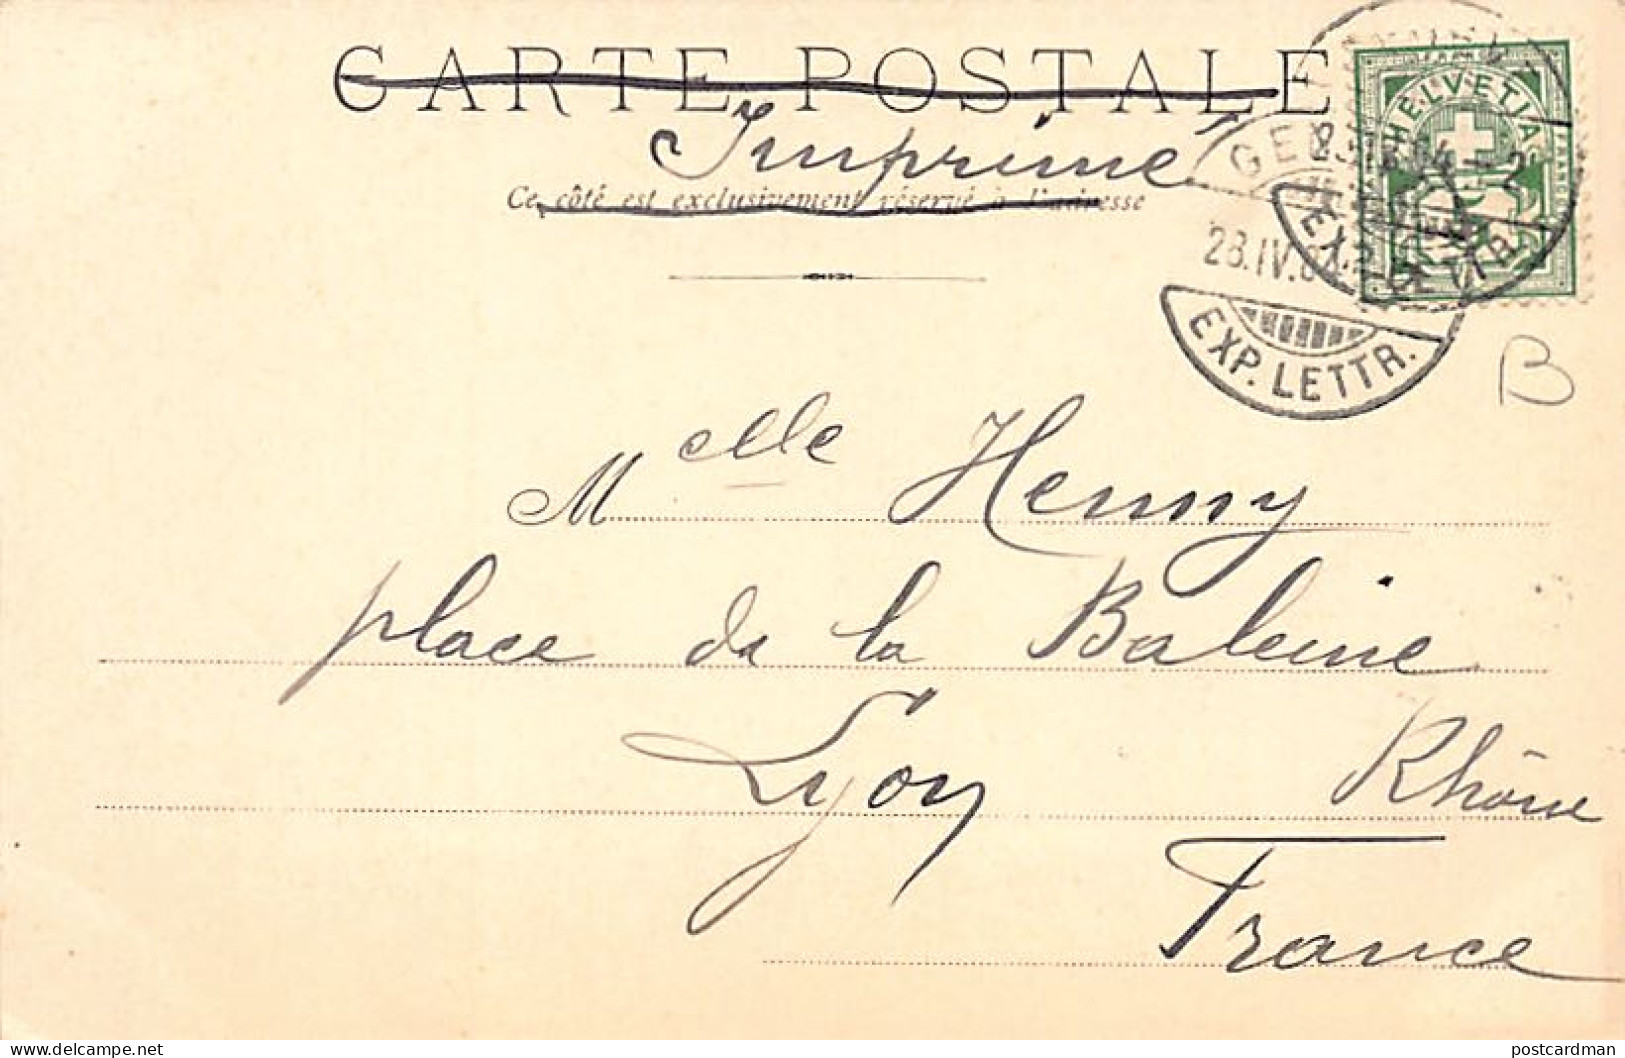 CARTE POSTALE
Imprimé
Ce côté est exclusivement réservé à l'adresse
HELVETIA
EXP. LETTR.
B
Melle Henny
place de la Baleine
Lyon Rhône
France
www.delcampe.net
postcardman